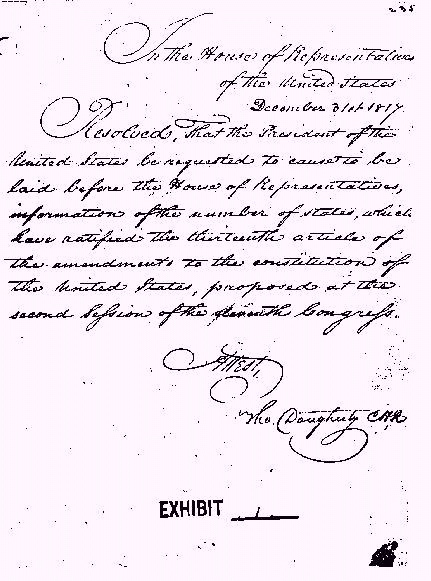 235
In the House of Representatives
of the United States
December 31st 1817.
Resolved, That the President of the
United States be requested to cause to be
laid before the House of Representatives,
information of the number of states, which
have ratified the thirteenth article of
the amendments to the constitution of
the United States, proposed at the
second Session of the eleventh Congress.
Attest,
Tho. Dougherty CHR
EXHIBIT 1